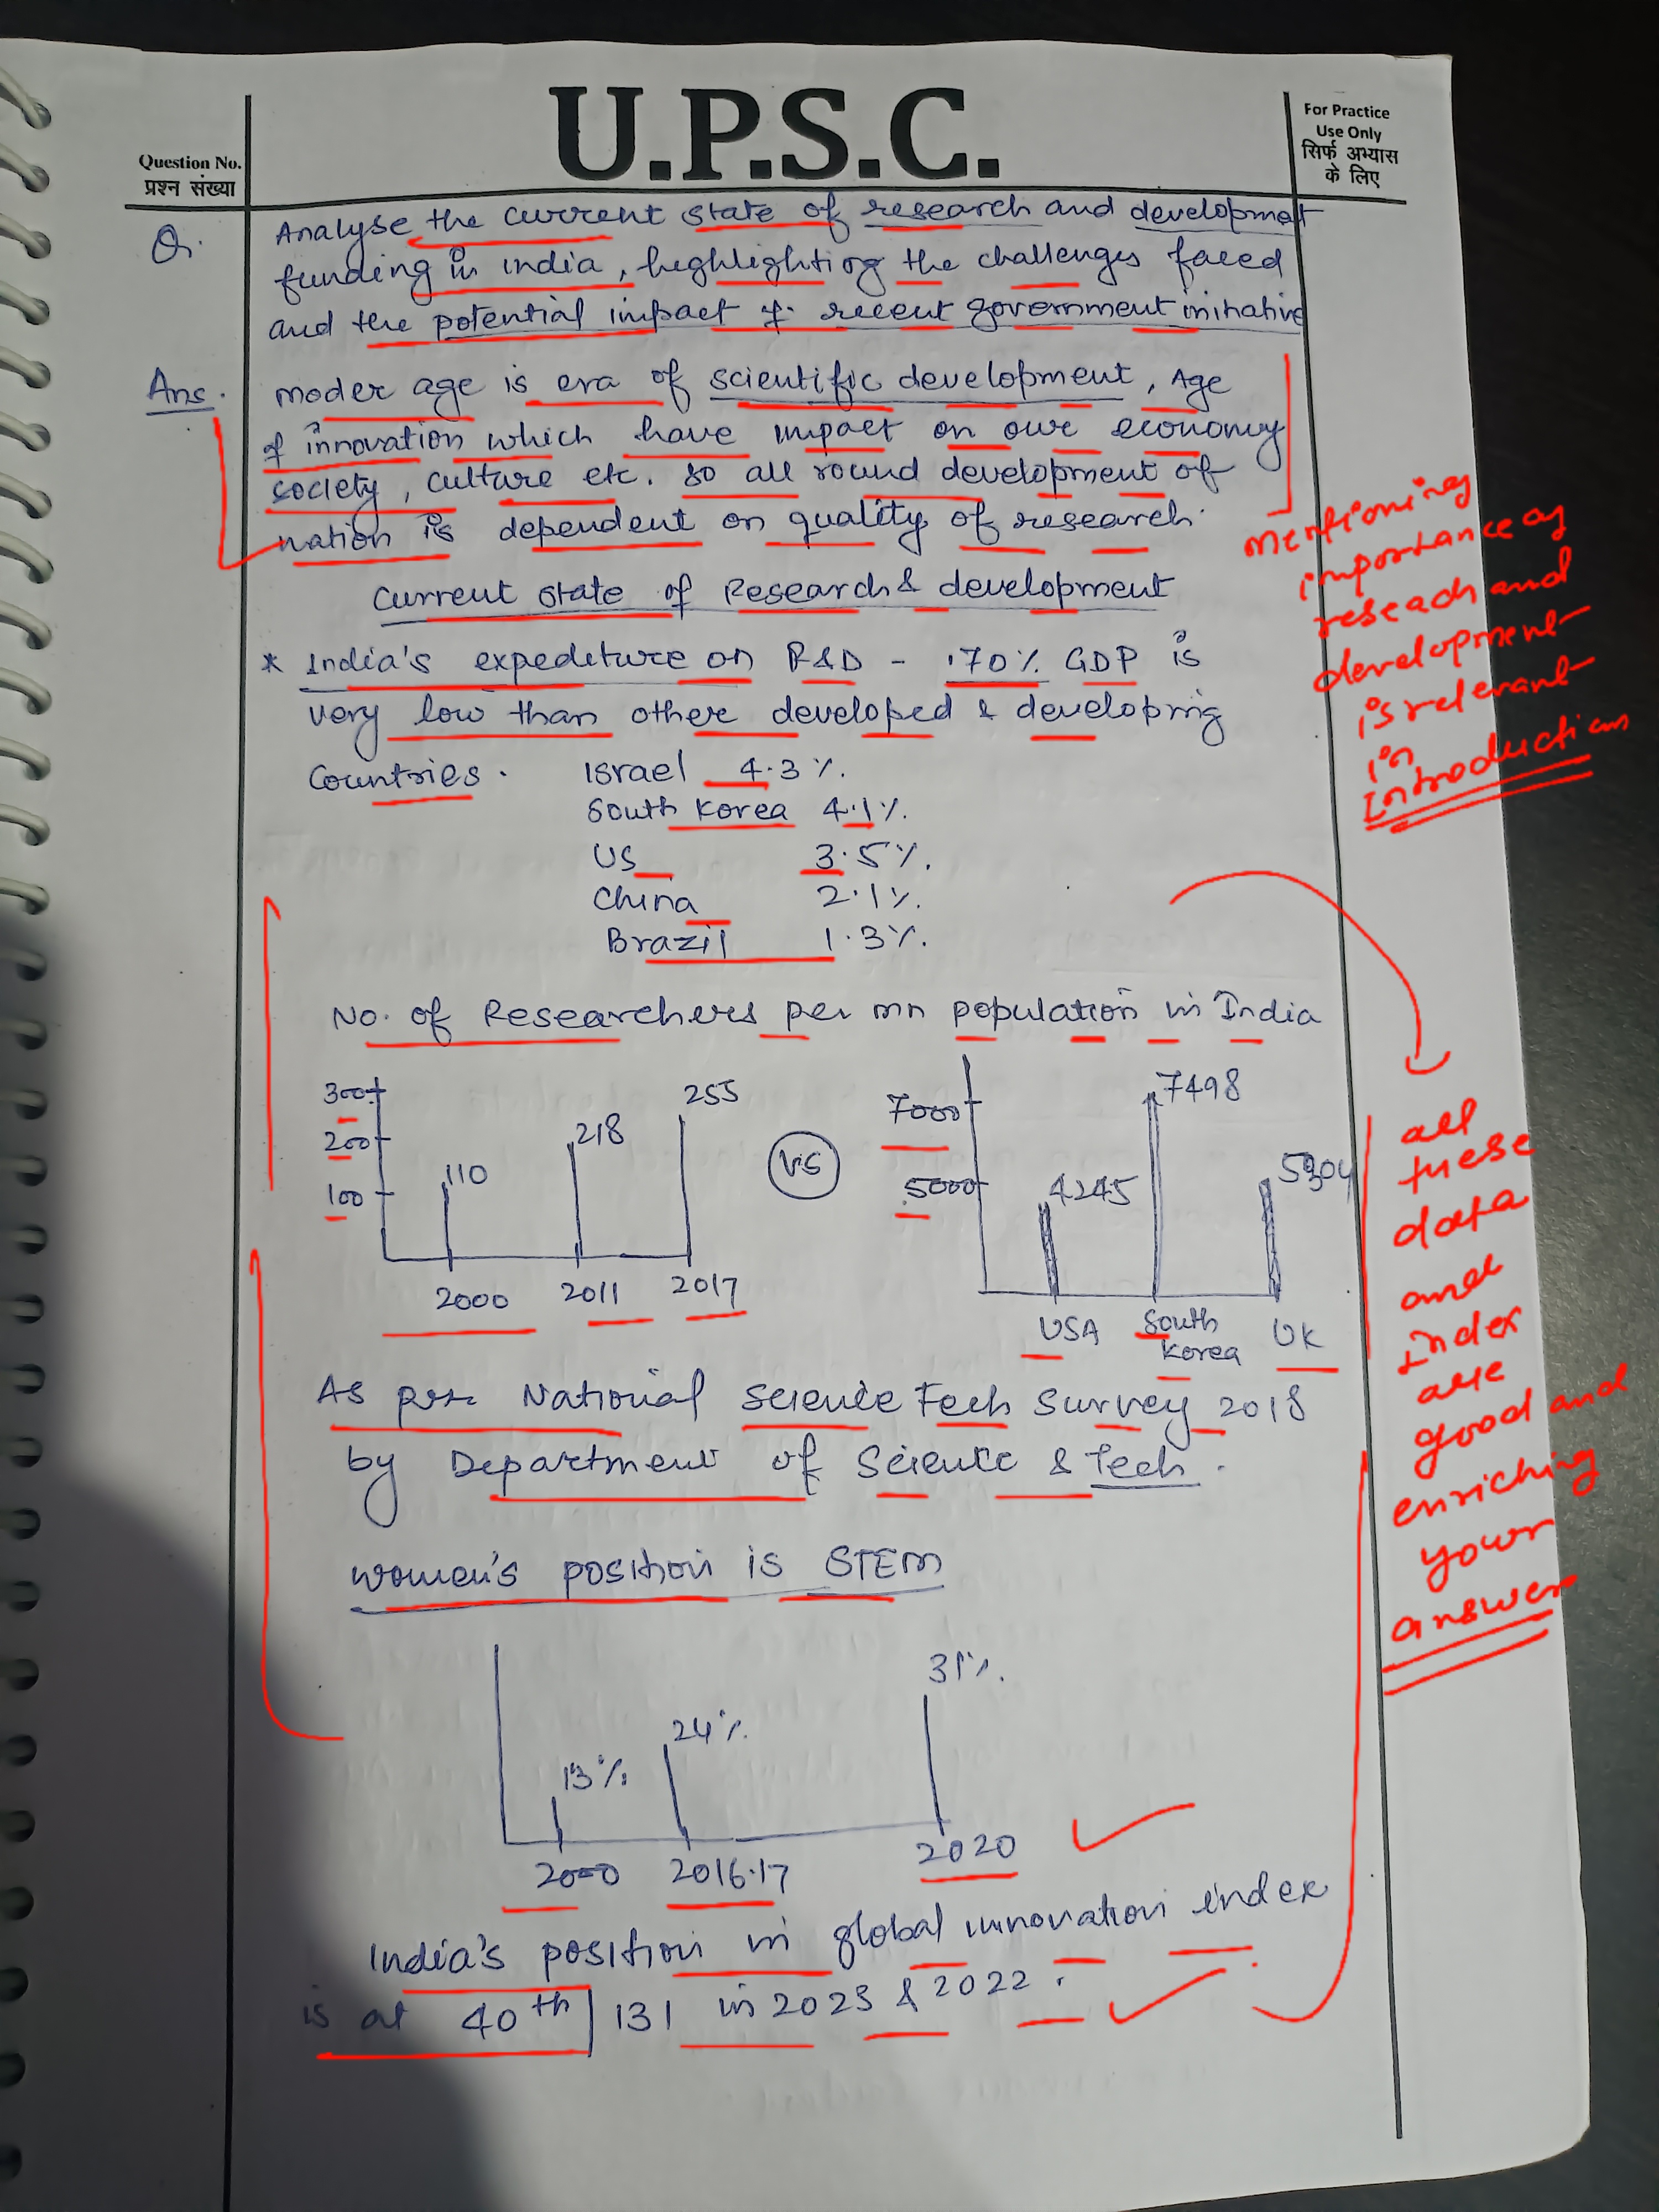 U.P.S.C.
Question No.
प्रश्न संख्या
For Practice
Use Only
सिर्फ अभ्यास
के लिए
Q. Analyse the current state of research and development
funding in india, highlighting the challenges faced
and the potential impact of recent government initiative
Ans. Moder age is era of scientific development, Age
of innovation which have impact on our economy
society, culture etc. so all round development of
nation is dependent on quality of research.
mentioning
importance of
reseach and
development
is relevant
in
Introduction
Current state of Research & development
* India's expediture on R&D - .70% GDP is
very low than other developed & developing
Countries.
Israel 4.3%.
South Korea 4.1%.
US 3.5%.
China 2.1%.
Brazil 1.3%.
No. of Researchers per mn population in India
300
200
100
110
218
255
2000
2011
2017
VS
7000
5000
4245
7498
USA
South
Korea
UK
all
these
data
and
index
are
good and
enriching
your
answer
As per National Science Tech Survey 2018
by Department of Science & Tech.
Women's position is STEM
13%
24%.
31%.
2000
2016-17
2020
India's position in global innovation index
is at 40th | 131 in 2023 & 2022.